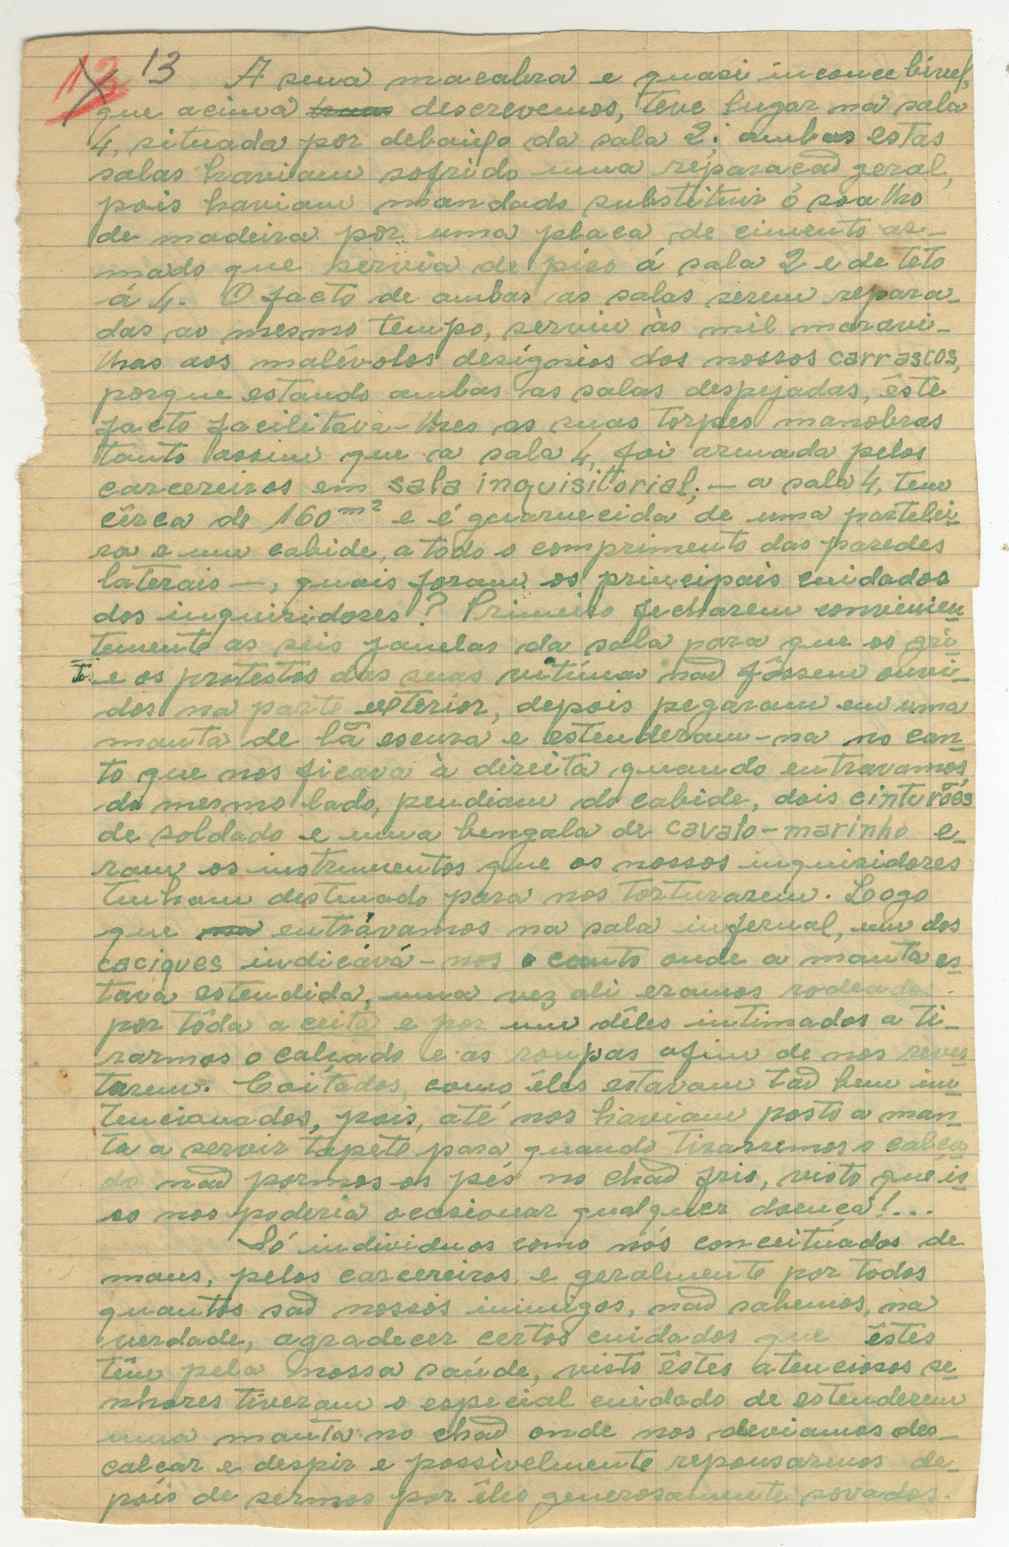 13 13
A sena macabra e quasi inconcebivel,
que acima descrevemos, teve lugar na sala
4, situada por debaixo da sala 2; ambas estas
salas haviam sofrido uma reparacaõ geral,
pois haviam mandado substituir o soalho
de madeira por uma placa de cimento ar-
mado que servia de piso á sala 2 e de této
á 4. O facto de ambas as salas serem repara-
das ao mesmo tempo, serviu às mil maravi-
lhas aos malévolos desígnios dos nossos carrascos,
porque estando ambas as salas despejadas, êste
facto facilitava-lhes as suas torpes manobras
tanto assim que a sala 4, foi armada pelos
carcereiros em sala inquisitorial; — a sala 4, tem
cêrca de 160 m² e é guarnecida de uma partelei-
ra e um cabide, a todo o comprimento das paredes
laterais —, quais foram os principais cuidados
dos inquiridores? Primeiro fecharem convenien
temente as seis janelas da sala para que os gri-
tos e os protestos das suas vitimas naõ fôssem ouvi-
dos na parte exterior, depois pegaram em uma
manta de lã escura e estenderam-na no can-
to que nos ficava à direita quando entravamos,
do mesmo lado, pendiam do cabide, dois cinturões
de soldado e uma bengala de cavalo-marinho e-
ram os instrumentos que os nossos inquisidores
tinham destinado para nos torturarem. Logo
que entrávamos na sala infernal, um dos
caciques indicává-nos o canto onde a manta es-
tava estendida, uma vez ali eramos rodeados
por tôda a ceita e por um dêles intimados a ti-
rarmos o calçado e as roupas afim de nos revis
tarem. Coitados, como êles estavam taõ bem in-
tencionados, pois, até nos haviam posto a man-
ta a servir tapete para quando tirassemos o calça
do naõ pormos os pés no chaõ frio, visto que is-
so nos poderia ocasionar qualquer doença!...
Só individuos como nós conceituados de
maus, pelos carcereiros e geralmente por todos
quantos saõ nossos inimigos, naõ sabemos, na
verdade, agradecer certos cuidados que êstes
têm pela nossa saúde, visto êstes atenciosos se-
nhores tiveram o especial cuidado de estenderem
uma manta no chaõ onde nos deviamos des-
calçar e despir e possivelmente repousarmos de-
pois de sermos por êles generosamente sovados.